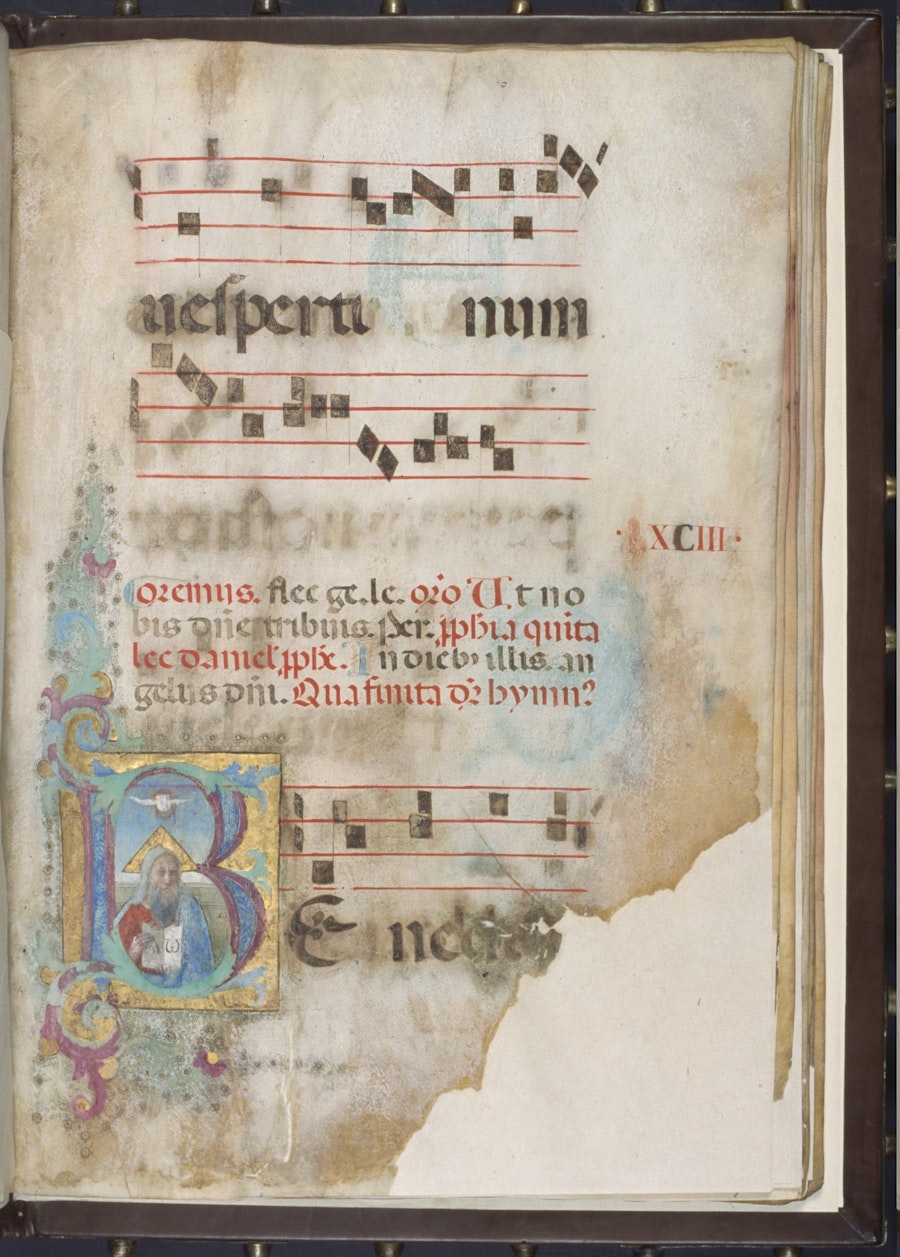 uesperti num
· XCIII ·
Oremus. flec ge. le. oro Ut no
bis dne tribuis. Per. pphia quita
lec daniel. pphe. In dieb illis. an
gelus dni. Qua finita dr hymn
BE nedictus